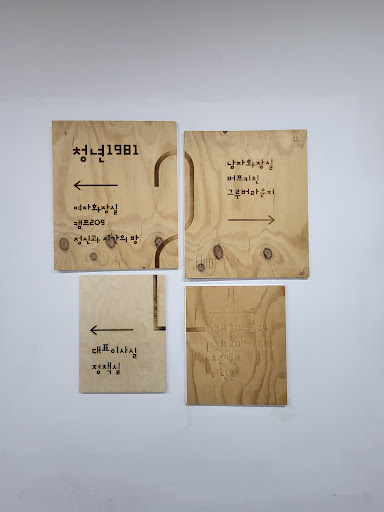 청년1981
←
여자화장실
캠프209
정신과 시간의 방
남자화장실
버프키친
그루버라운지
→
←
대표이사실
정책실